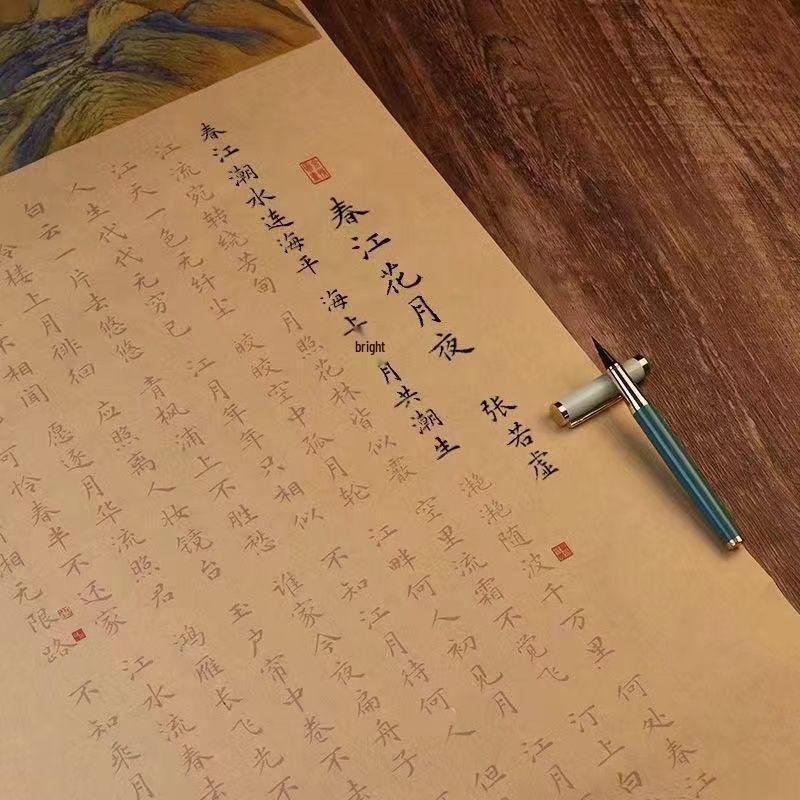 春江花月夜
张若虚
春江潮水连海平 海上bright月共潮生 滟滟随波千万里 何处春江
江流宛转绕芳甸 月照花林皆似霰 空里流霜不觉飞 汀上白
江天一色无纤尘 皎皎空中孤月轮 江畔何人初见月 江月
人生代代无穷已 江月年年只相似 不知江月待何人 但
白云一片去悠悠 青枫浦上不胜愁 谁家今夜扁舟子
楼上月徘徊 应照离人妆镜台 玉户帘中卷不去
不相闻 愿逐月华流照君 鸿雁长飞光不
可怜春半不还家 江水流春去
湘无限路 不知乘月